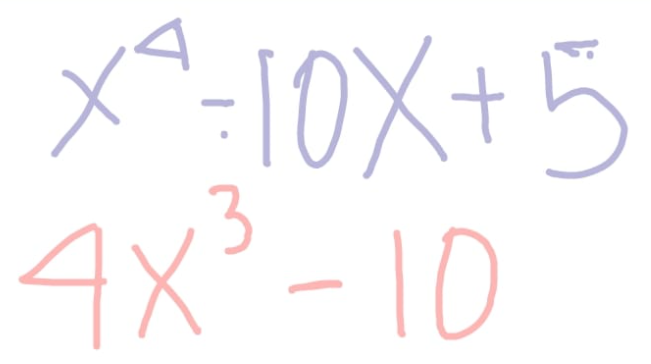 x⁴ - 10x + 5
4x³ - 10